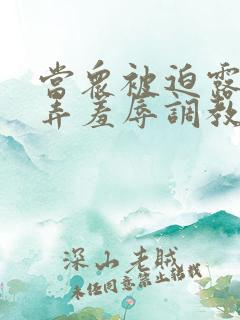 當眾被迫露
弄羞辱調教
深山老賊
未經同意禁止轉載